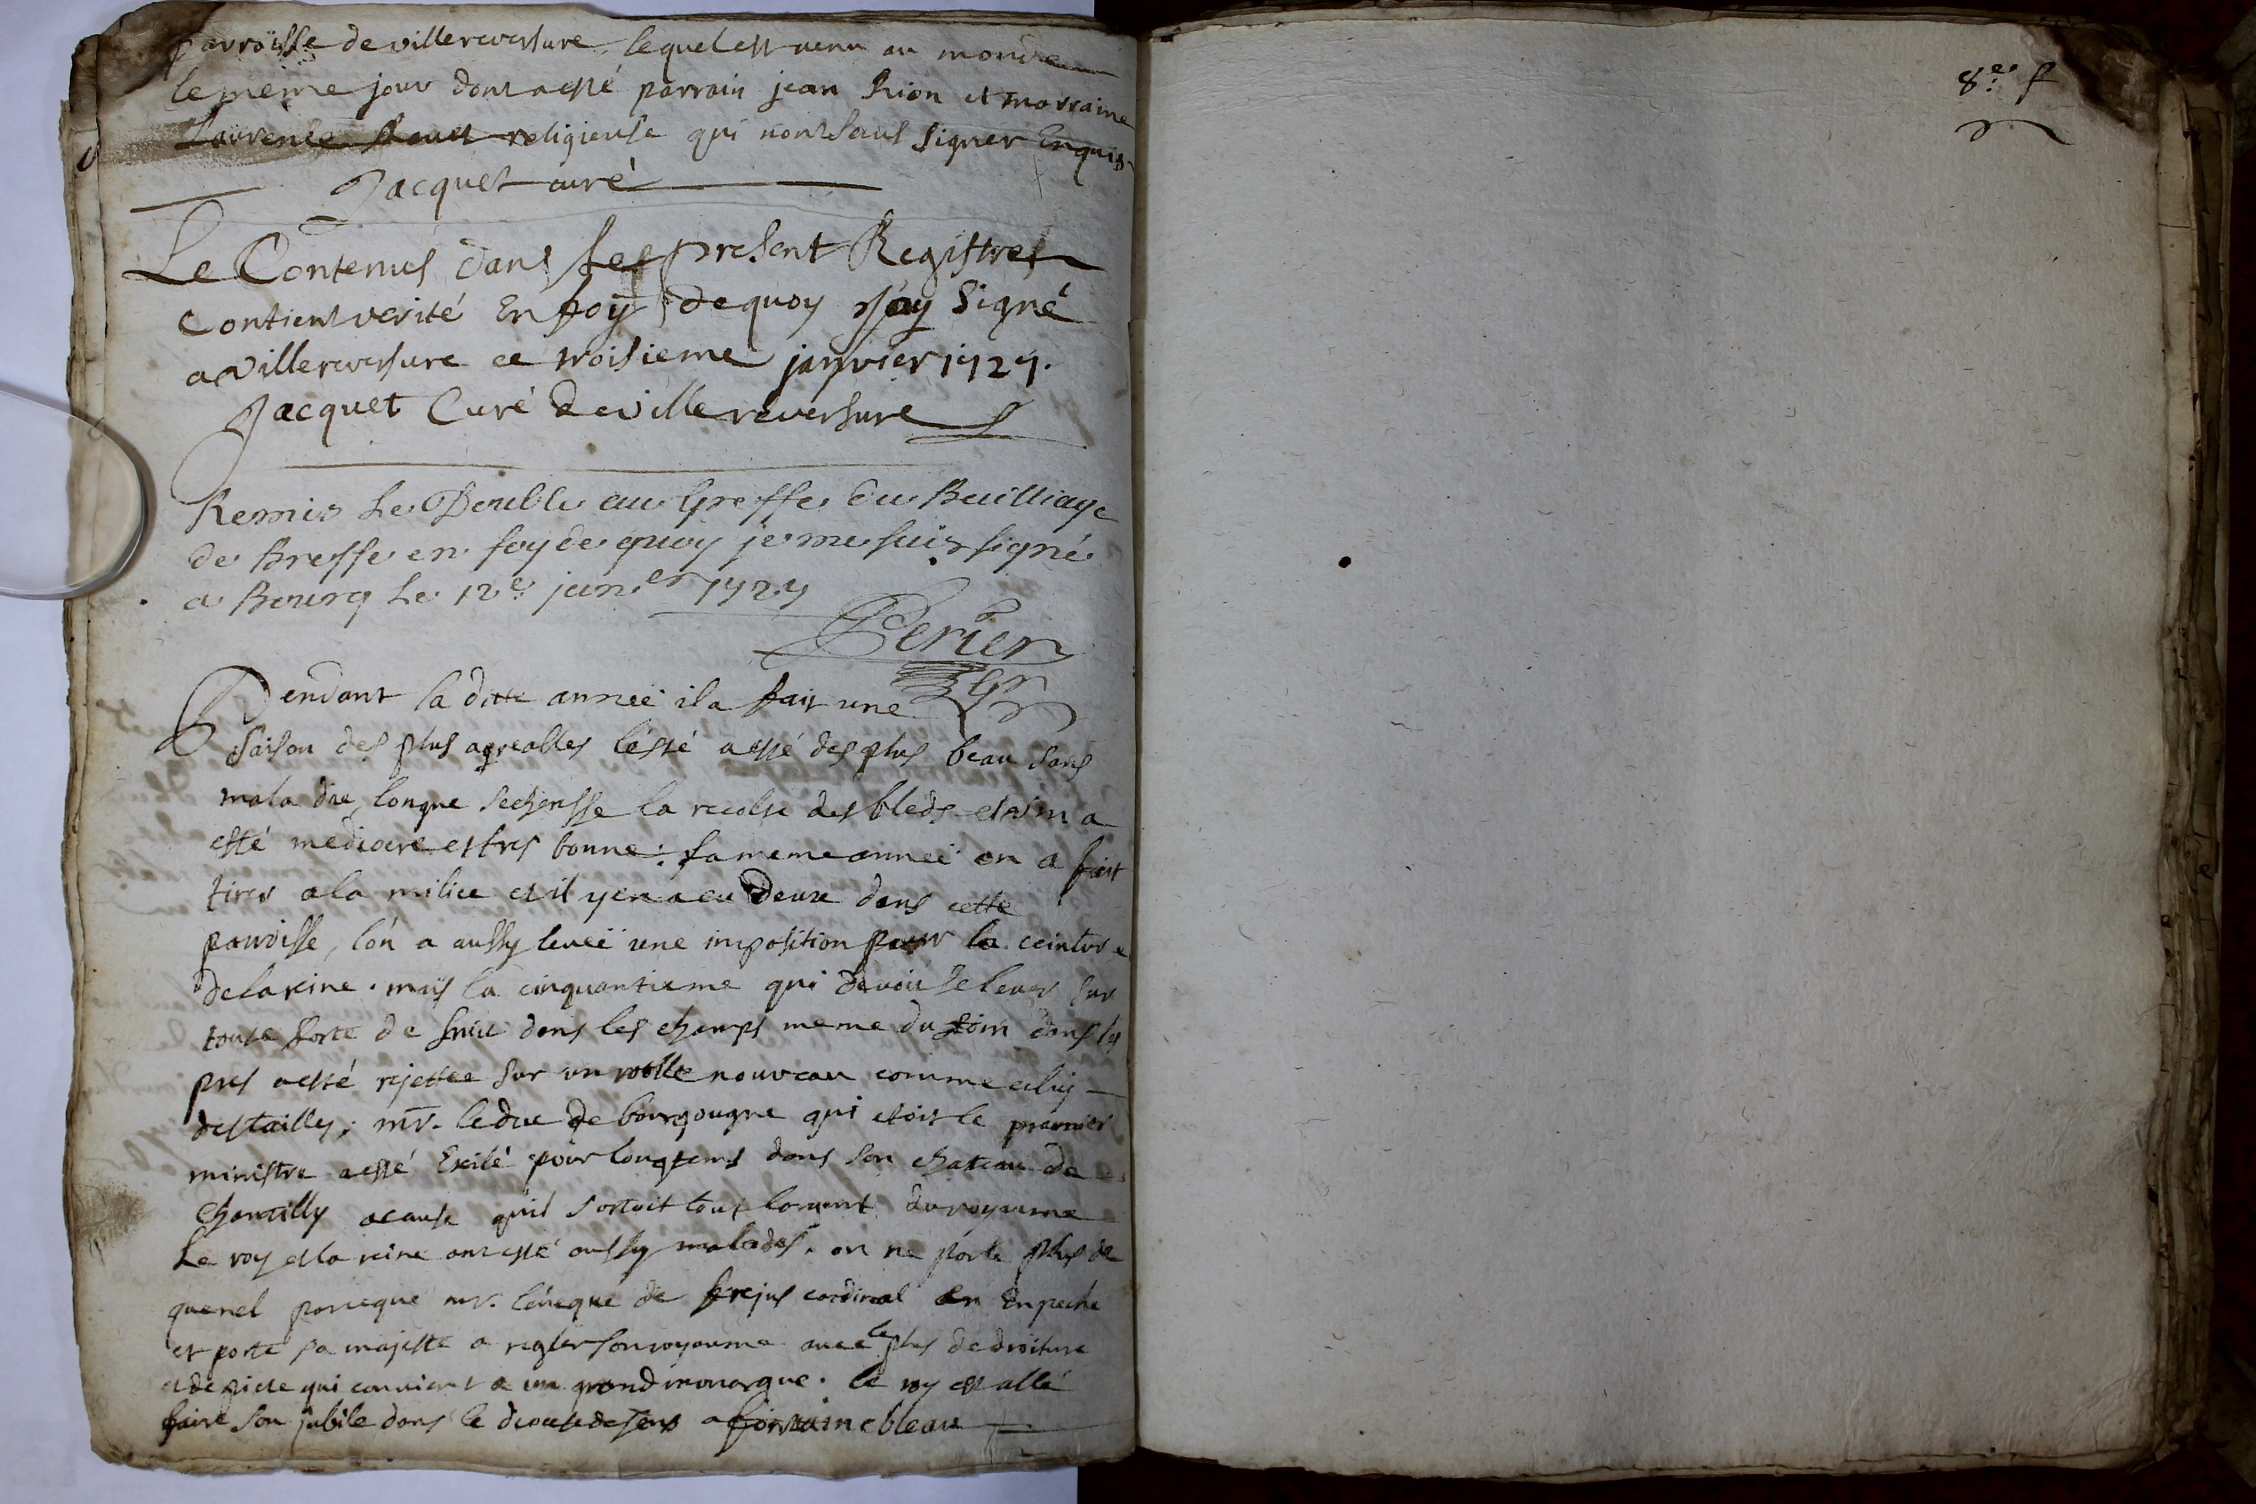 parroisse de villereversure lequel est venu au monde
le meme jour dont a esté parrain jean Rion et marraine
Laurence religieuse qui n'ont sceus signer Enquis
Jacquet curé
Le Contenus dans les present Registres
contient verité En foy de quoy j'ay signé
a villereversure ce troisieme janvier 1727.
Jacquet Curé de villereversure
Remis Le Double au Greffe du Bailliage
de Bresse en foy de quoy je me suis signé
a Bourg Le 12e janer 1727
Perier
Pendant la ditte anneé il a fait une
saison des plus agreables l'ésté a esté des plus beau sans
maladie, longue secheresse la recolte des bleds et vin a
esté mediocre et tres bonne: la meme anneé on a fait
tirer a la milice et il y en a eu Deux dans cette
parroisse, l'on a aussy leveé une imposition pour la ceinture
de la reine. mais la cinquantieme qui devoit se lever sur
toute sorte de fruit dans les champs meme du foin dans les
pres a esté rejettee sur un rolle nouveau comme celuy
des tailles; mr. le duc de bourgougne qui etoit le premier
ministre a esté Exilé pour longtems dans son chateau de
Chantilly a cause qu'il sortoit tout l'argent du royaume
Le roy et la reine ont esté aussy malades. on ne parle plus de
quenel parceque mr. l'eveque de frejus cardinal en Enpeche
et porte sa majesté a regler son royaume avec le plus de droiture
et de pieté qui convient a un grand monarque. le roy est allé
faire son jubile dans le diocese de sens a fontainebleau
8e. f